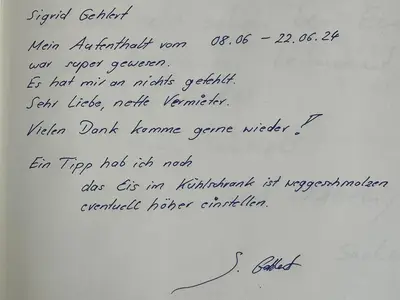 Sigrid Gehlert
Mein Aufenthalt vom 08.06 – 22.06.24
war super gewesen.
Es hat mir an nichts gefehlt.
Sehr Liebe, nette Vermieter.
Vielen Dank komme gerne wieder!
Ein Tipp hab ich noch
das Eis im Kühlschrank ist weggeschmolzen
eventuell höher einstellen.
S.